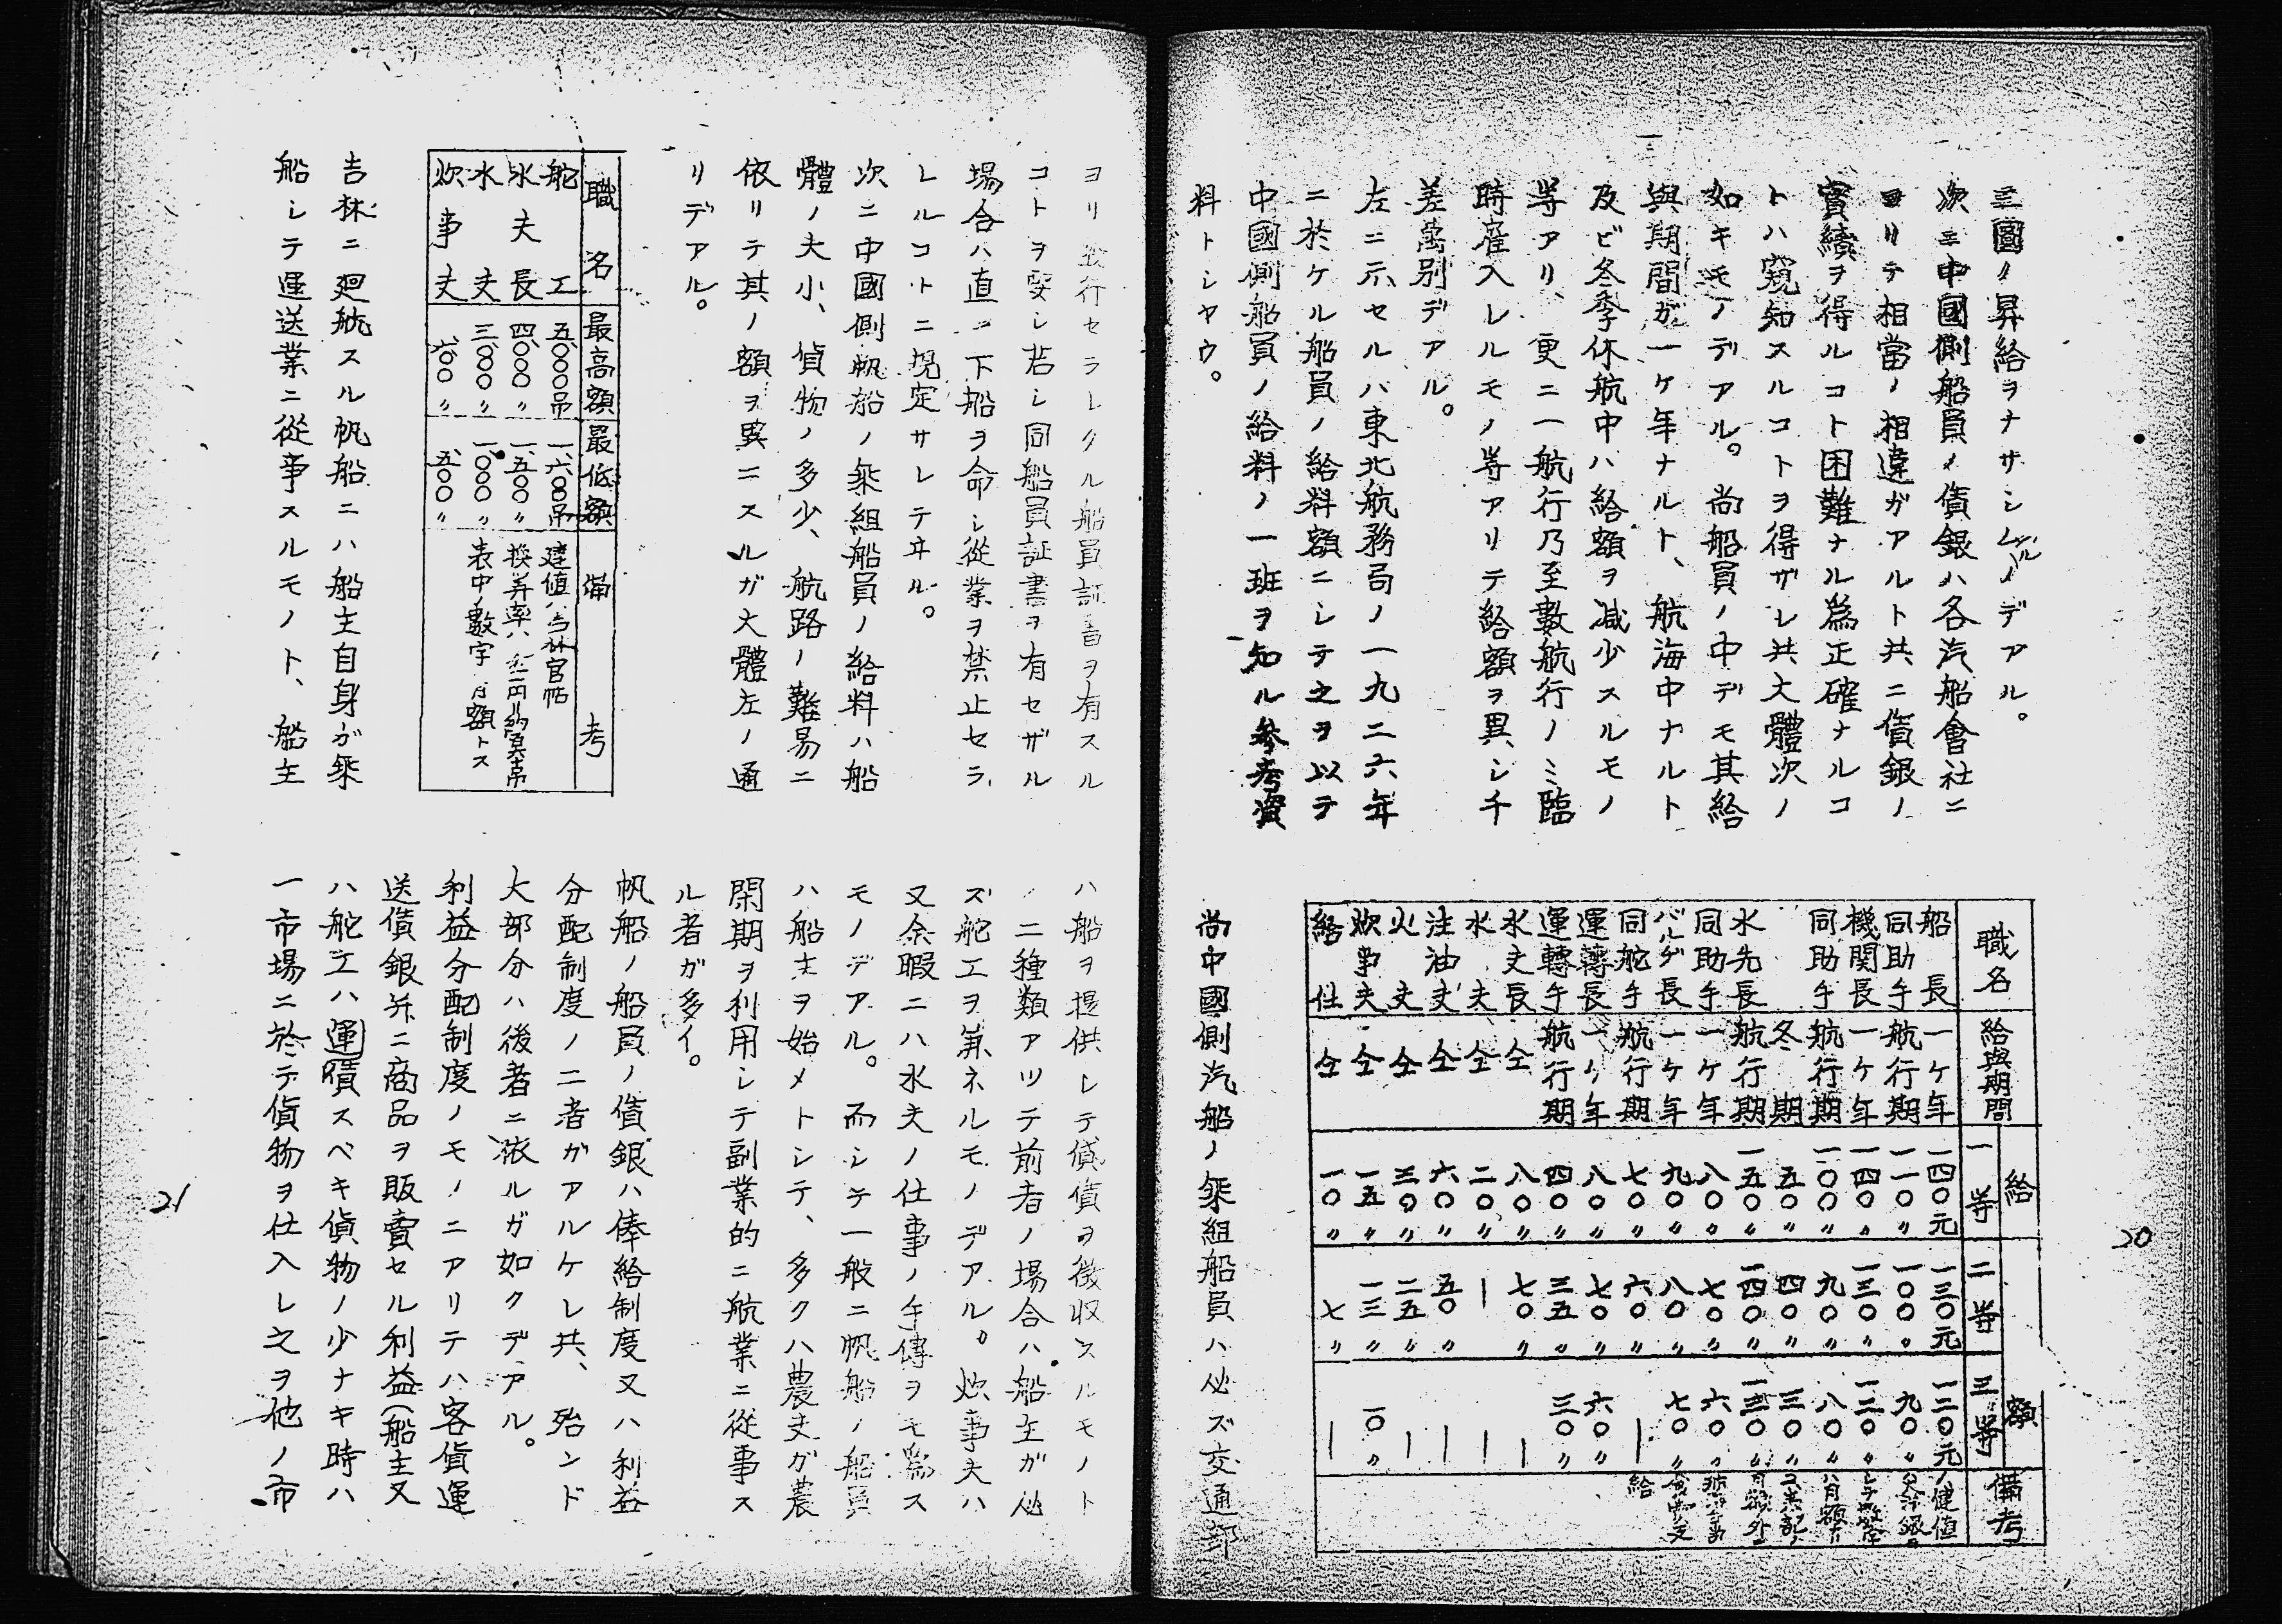 三圓ノ昇給ヲナサシムルノデアル。
次ニ中國側船員ノ賃銀ハ各汽船會社ニ
ヨリテ相當ノ相違ガアルト共ニ賃銀ノ
實績ヲ得ルコト困難ナル為正確ナルコ
トハ窺知スルコトヲ得ザレ共大體次ノ
如キモノデアル。尚船員ノ中デモ其給
與期間ガ一ケ年ナルト、航海中ナルト
及ビ冬季休航中ハ給額ヲ減少スルモノ
等アリ、更ニ一航行乃至數航行ノミ臨
時雇入レルモノ等アリテ給額ヲ異シ千
差萬別デアル。
左ニ示セルハ東北航務局ノ一九二六年
ニ於ケル船員ノ給料額ニシテ之ヲ以テ
中國側船員ノ給料ノ一班ヲ知ル参考資
料トシヤウ。
職名 給與期間 給額 一等 二等 三等 備考
船長 一ケ年 一四〇元 一三〇元 一二〇元
同助手 航行期 一一〇〃 一〇〇〃 九〇〃
機関長 一ケ年 一四〇〃 一三〇〃 一二〇〃
同助手 航行期 一〇〇〃 九〇〃 八〇〃
冬期 五〇〃 四〇〃 三〇〃
水先長 航行期 一五〇〃 一四〇〃 一三〇〃
同助手 一ケ年 八〇〃 七〇〃 六〇〃
バルヂ長 一ケ年 九〇〃 八〇〃 七〇〃
同舵手 航行期 七〇〃 六〇〃 ー
運轉長 一ケ年 八〇〃 七〇〃 六〇〃
運轉手 航行期 四〇〃 三五〃 三〇〃
水夫長 仝 八〇〃 七〇〃 ー
水夫 仝 二〇〃 ー ー
注油夫 仝 六〇〃 五〇〃 ー
火夫 仝 三〇〃 二五〃 ー
炊事夫 仝 一五〃 一三〃 一〇〃
給仕 仝 一〇〃 七〃 ー
尚中國側汽船ノ乘組船員ハ必ズ交通部
20
ヨリ發行セラレタル船員証書ヲ有スル
コトヲ要シ若シ同船員証書ヲ有セザル
場合ハ直ニ下船ヲ命シ從業ヲ禁止セラ
レルコトニ規定サレテヰル。
次ニ中國側帆船ノ乘組船員ノ給料ハ船
體ノ大小、貨物ノ多少、航路ノ難易ニ
依リテ其ノ額ヲ異ニスルガ大體左ノ通
リデアル。
職名 最高額 最低額 備考
舵工 五、〇〇〇吊 一、六〇〇吊 建值ハ吉林官帖
水夫長 四、〇〇〇〃 一、五〇〇〃
水夫 三、〇〇〇〃 一、〇〇〇〃 表中ノ數字ハ月額トス
炊事夫 六〇〇〃 五〇〇〃
吉林ニ廻航スル帆船ニハ船主自身ガ乘
船シテ運送業ニ從事スルモノト、船主
ハ船ヲ提供シテ賃貸ヲ徴收スルモノト
ノ二種類アツテ前者ノ場合ハ船主ガ必
ズ舵工ヲ兼ネルモノデアル。炊事夫ハ
又余暇ニハ水夫ノ仕事ノ手傳ヲモ為ス
モノデアル。而シテ一般ニ帆船ノ船員
ハ船主ヲ始メトシテ、多クハ農夫ガ農
閑期ヲ利用シテ副業的ニ航業ニ從事ス
ル者ガ多イ。
帆船ノ船員ノ賃銀ハ俸給制度又ハ利益
分配制度ノ二者ガアルケレ共、殆ンド
大部分ハ後者ニ依ルガ如クデアル。
利益分配制度ノモノニアリテハ客貨運
送賃銀并ニ商品ヲ販賣セル利益(船主又
ハ舵工ハ運積スベキ貨物ノ少ナキ時ハ
一市場ニ於テ貨物ヲ仕入レ之ヲ他ノ市
21